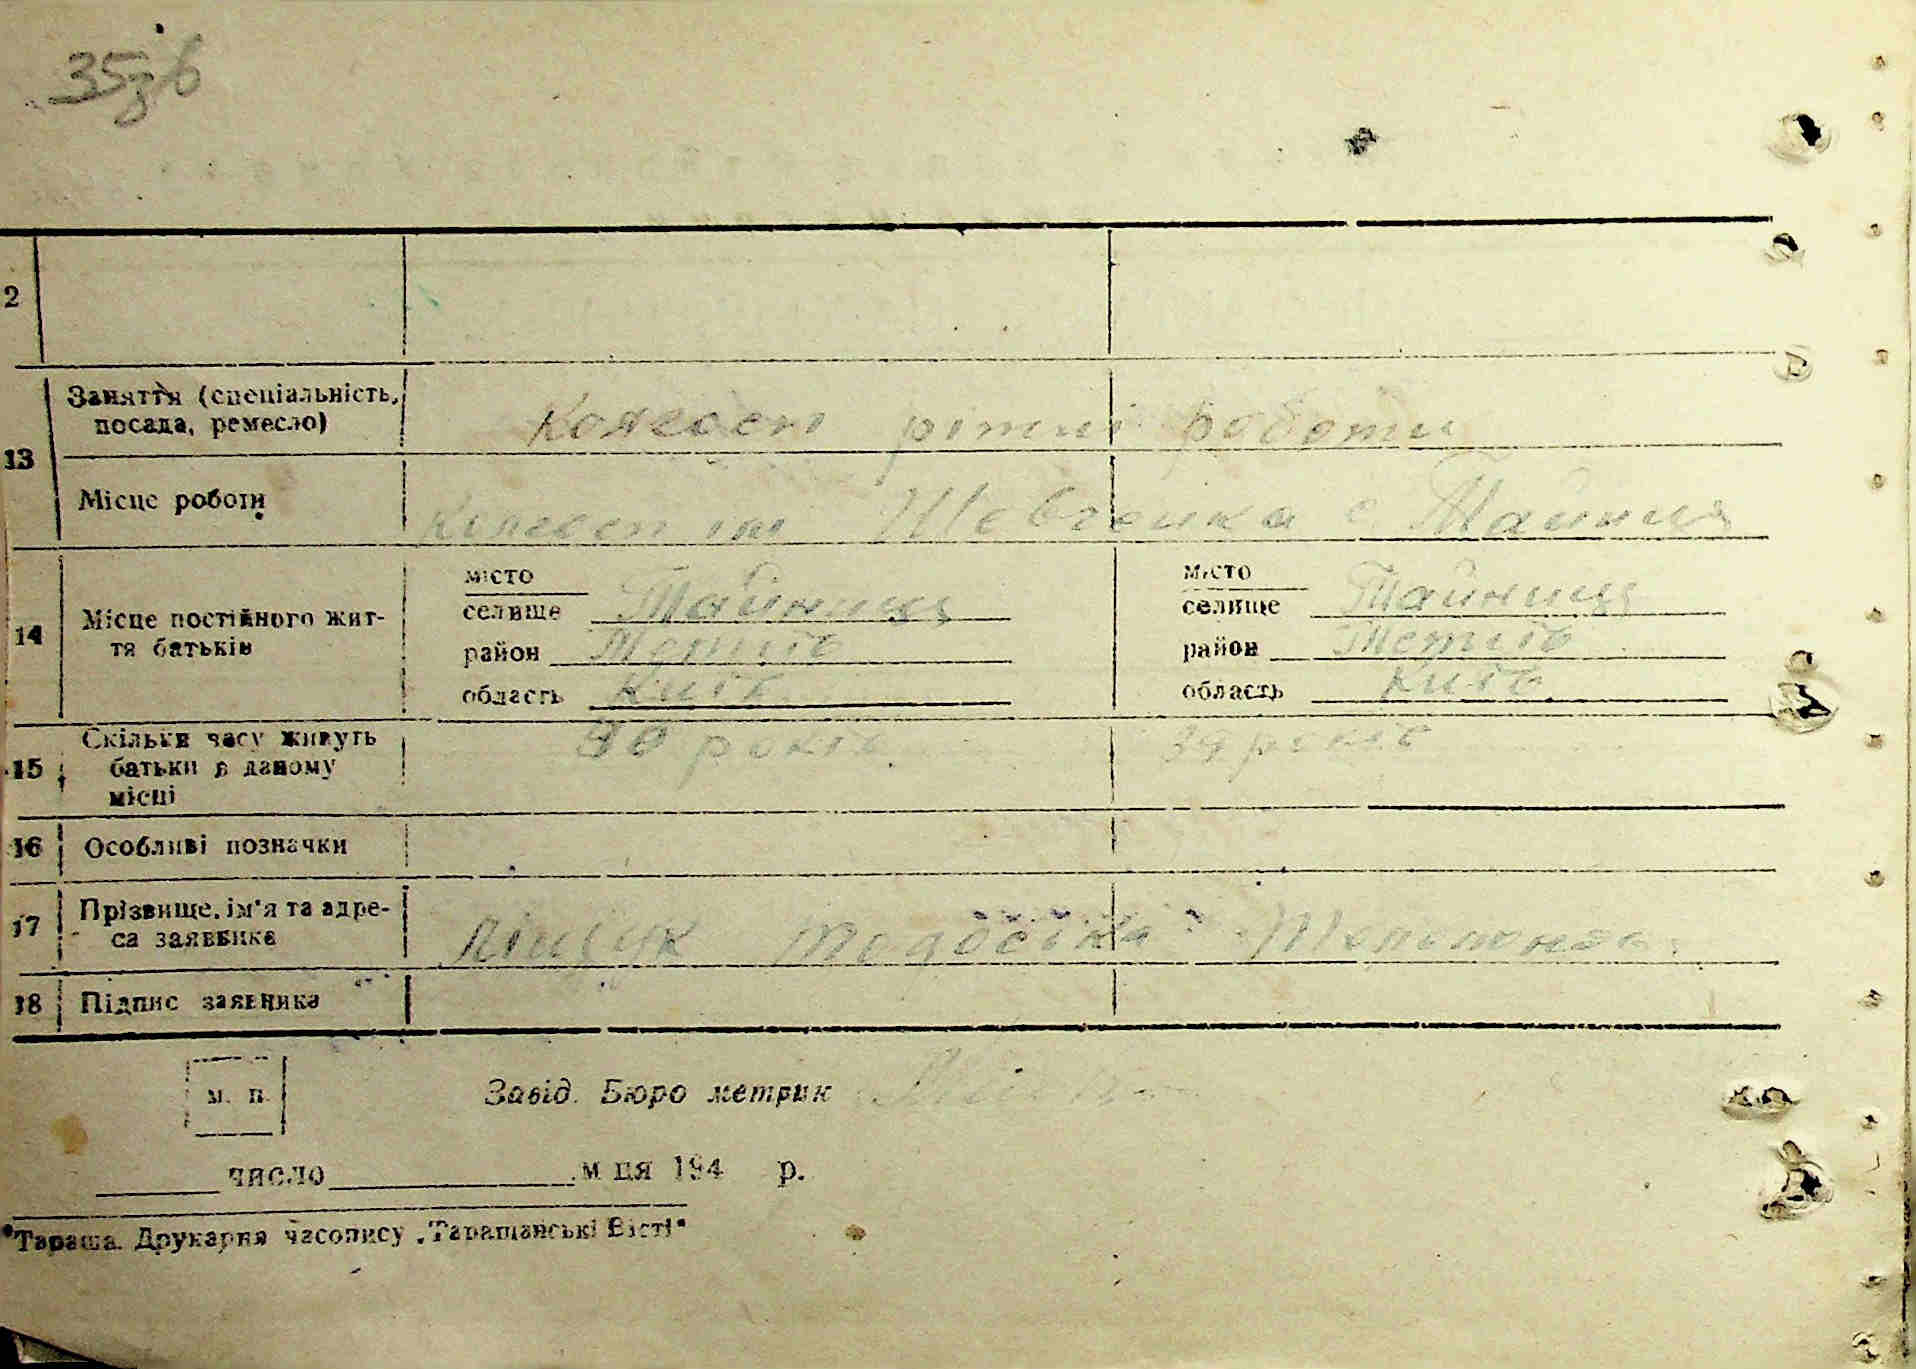 35 зв
2
13 Заняття (спеціальність, посада, ремесло) Колгосп різні роботи
Місце роботи Колгосп ім Шевченка с. Тайниця
14 Місце постійного життя батьків
місто місто
селище Тайниця селище Тайниця
район Тетіїв район Тетіїв
область Київ область Київ
15 Скільки часу живуть батьки в даному місці 30 років 39 років
16 Особливі позначки
17 Прізвище, ім'я та адреса заявника Ліщук
18 Підпис заявника
м. п. Завід. Бюро метрик
число м ця 194 р.
Тараща. Друкарня часопису „Таращанські Вісті"